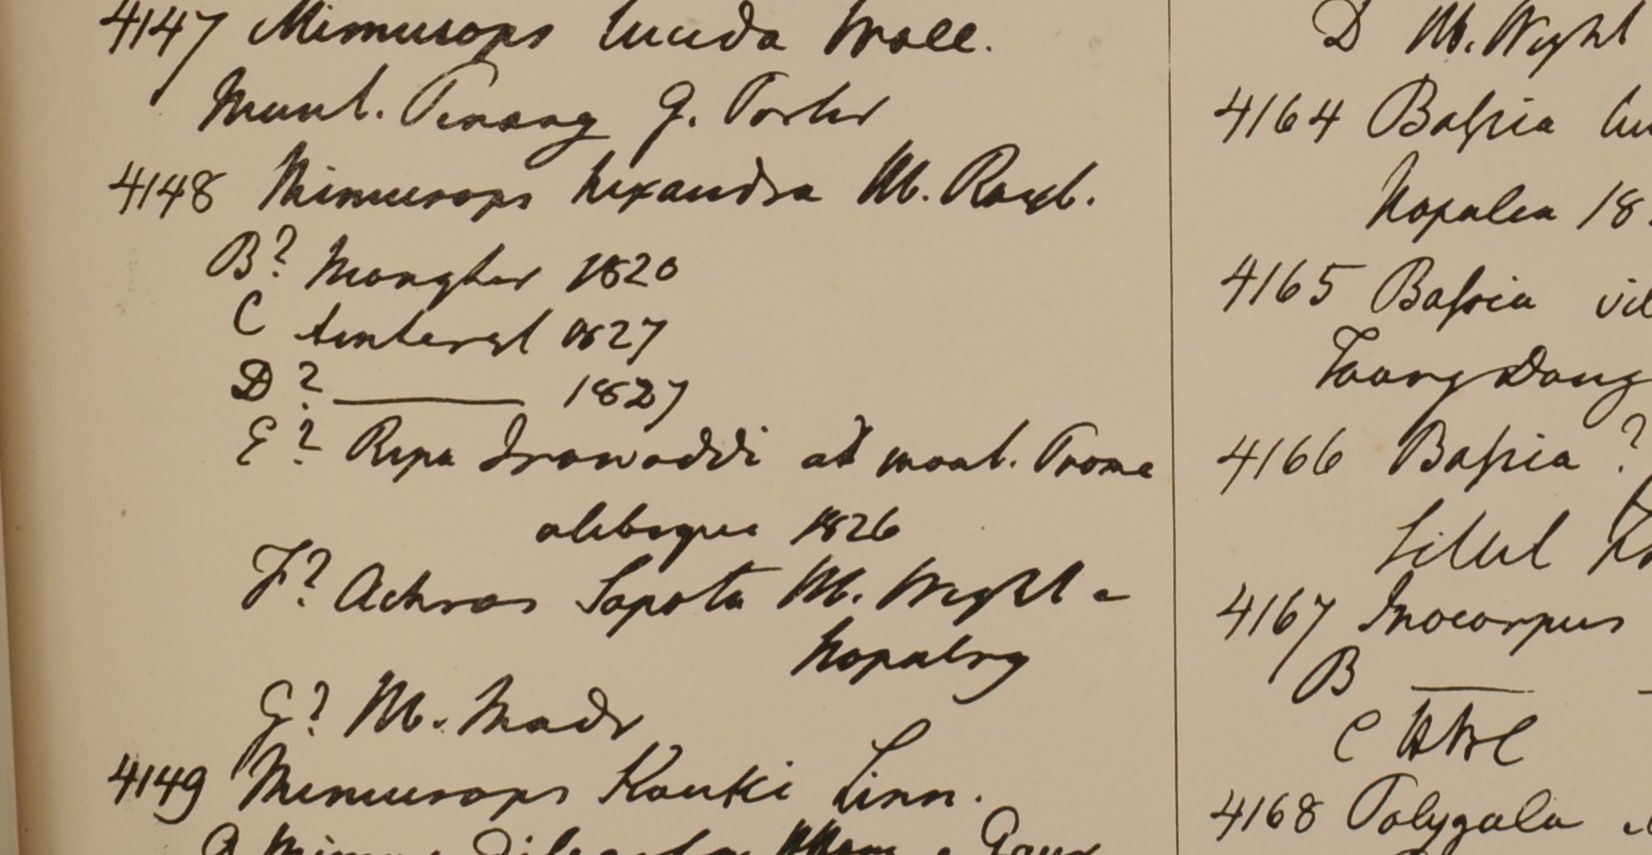 4147 Mimusops lucida Wall.
Mont. Penang G. Porter
4148 Mimusops hexandra Hb. Roxb.
B? Mongher 1820
C Amherst 1827
D? ——— 1827
E? Ripa Irawaddi ad mont. Prome
aliosque 1826
F? Achras Sapota Hb. Wight e
Nopalry
G? Hb. Madr
4149 Mimusops Kauki Linn.
B
D Hb. Wight
4164 Bassia
Napalia 18
4165 Bassia
Taong Dong
4166 Bassia ?
Sillet
4167 Inocarpus
B ———
C HBC
4168 Polygala